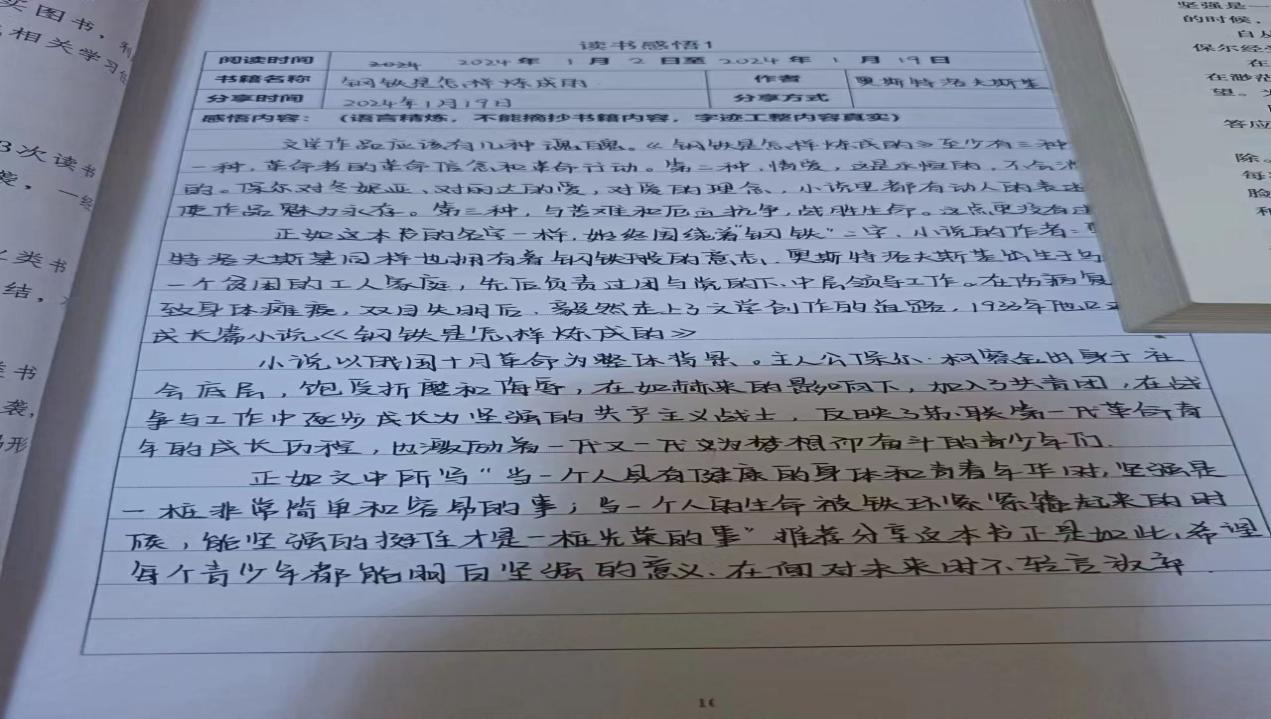 买图书，利
相关学习
3次读书
袭，一经
类书
结，
类书
袭，
形
坚强是一
的时候，
自从
保尔经
在
在渺茫
望。为
答应
除。
每
脸
和
读书感悟1
阅读时间 2024 2024年1月2日至2024年1月19日
书籍名称 钢铁是怎样炼成的 作者 奥斯特洛夫斯基
分享时间 2024年1月19日 分享方式
感悟内容：（语言精炼，不能摘抄书籍内容，字迹工整内容真实）
文学作品应该有几种魂魄。《钢铁是怎样炼成的》至少有三种
一种，革命者的革命信念和革命行动。第二种，情爱，这是永恒的，不会消
的。保尔对冬妮亚、对丽达的爱，对爱的理念，小说里都有动人的表述
使作品魅力永存。第三种，与苦难和厄运抗争，战胜生命。这点更没有过
正如这本书的名字一样，始终围绕着"钢铁"二字，小说的作者：奥
特洛夫斯基同样也拥有着钢铁般的意志，奥斯特洛夫斯基出生于乌
一个贫困的工人家庭，先后负责过团与党的下、中层领导工作。在伤病复
致身体瘫痪，双目失明后，毅然走上了文学创作的道路，1933年他以
成长篇小说《钢铁是怎样炼成的》
小说以俄国十月革命为整体背景。主人公保尔·柯察金出身于社
会底层，饱受折磨和侮辱，在如赫来的影响下，加入了共青团，在战
争与工作中逐步成长为坚强的共产主义战士，反映了苏联第一代革命青
年的成长历程，也激励着一代又一代为梦想而奋斗的青少年们.
正如文中所写"当一个人具有健康的身体和青春年华时，坚强是
一桩非常简单和容易的事；当一个人的生命被铁环紧紧箍起来的时
候，能坚强的挺住才是一桩光荣的事"推荐分享这本书正是如此，希望
每个青少年都能明白坚强的意义.在面对未来时不轻言放弃